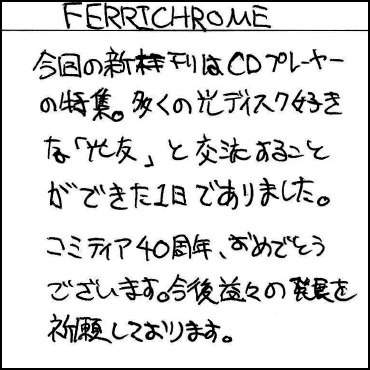 FERRICHROME
今回の新刊はCDプレーヤー
の特集。多くの光ディスク好き
な「光友」と交流すること
ができた1日でありました。
コミティア40周年、おめでとう
ございます。今後益々の発展を
祈願しております。